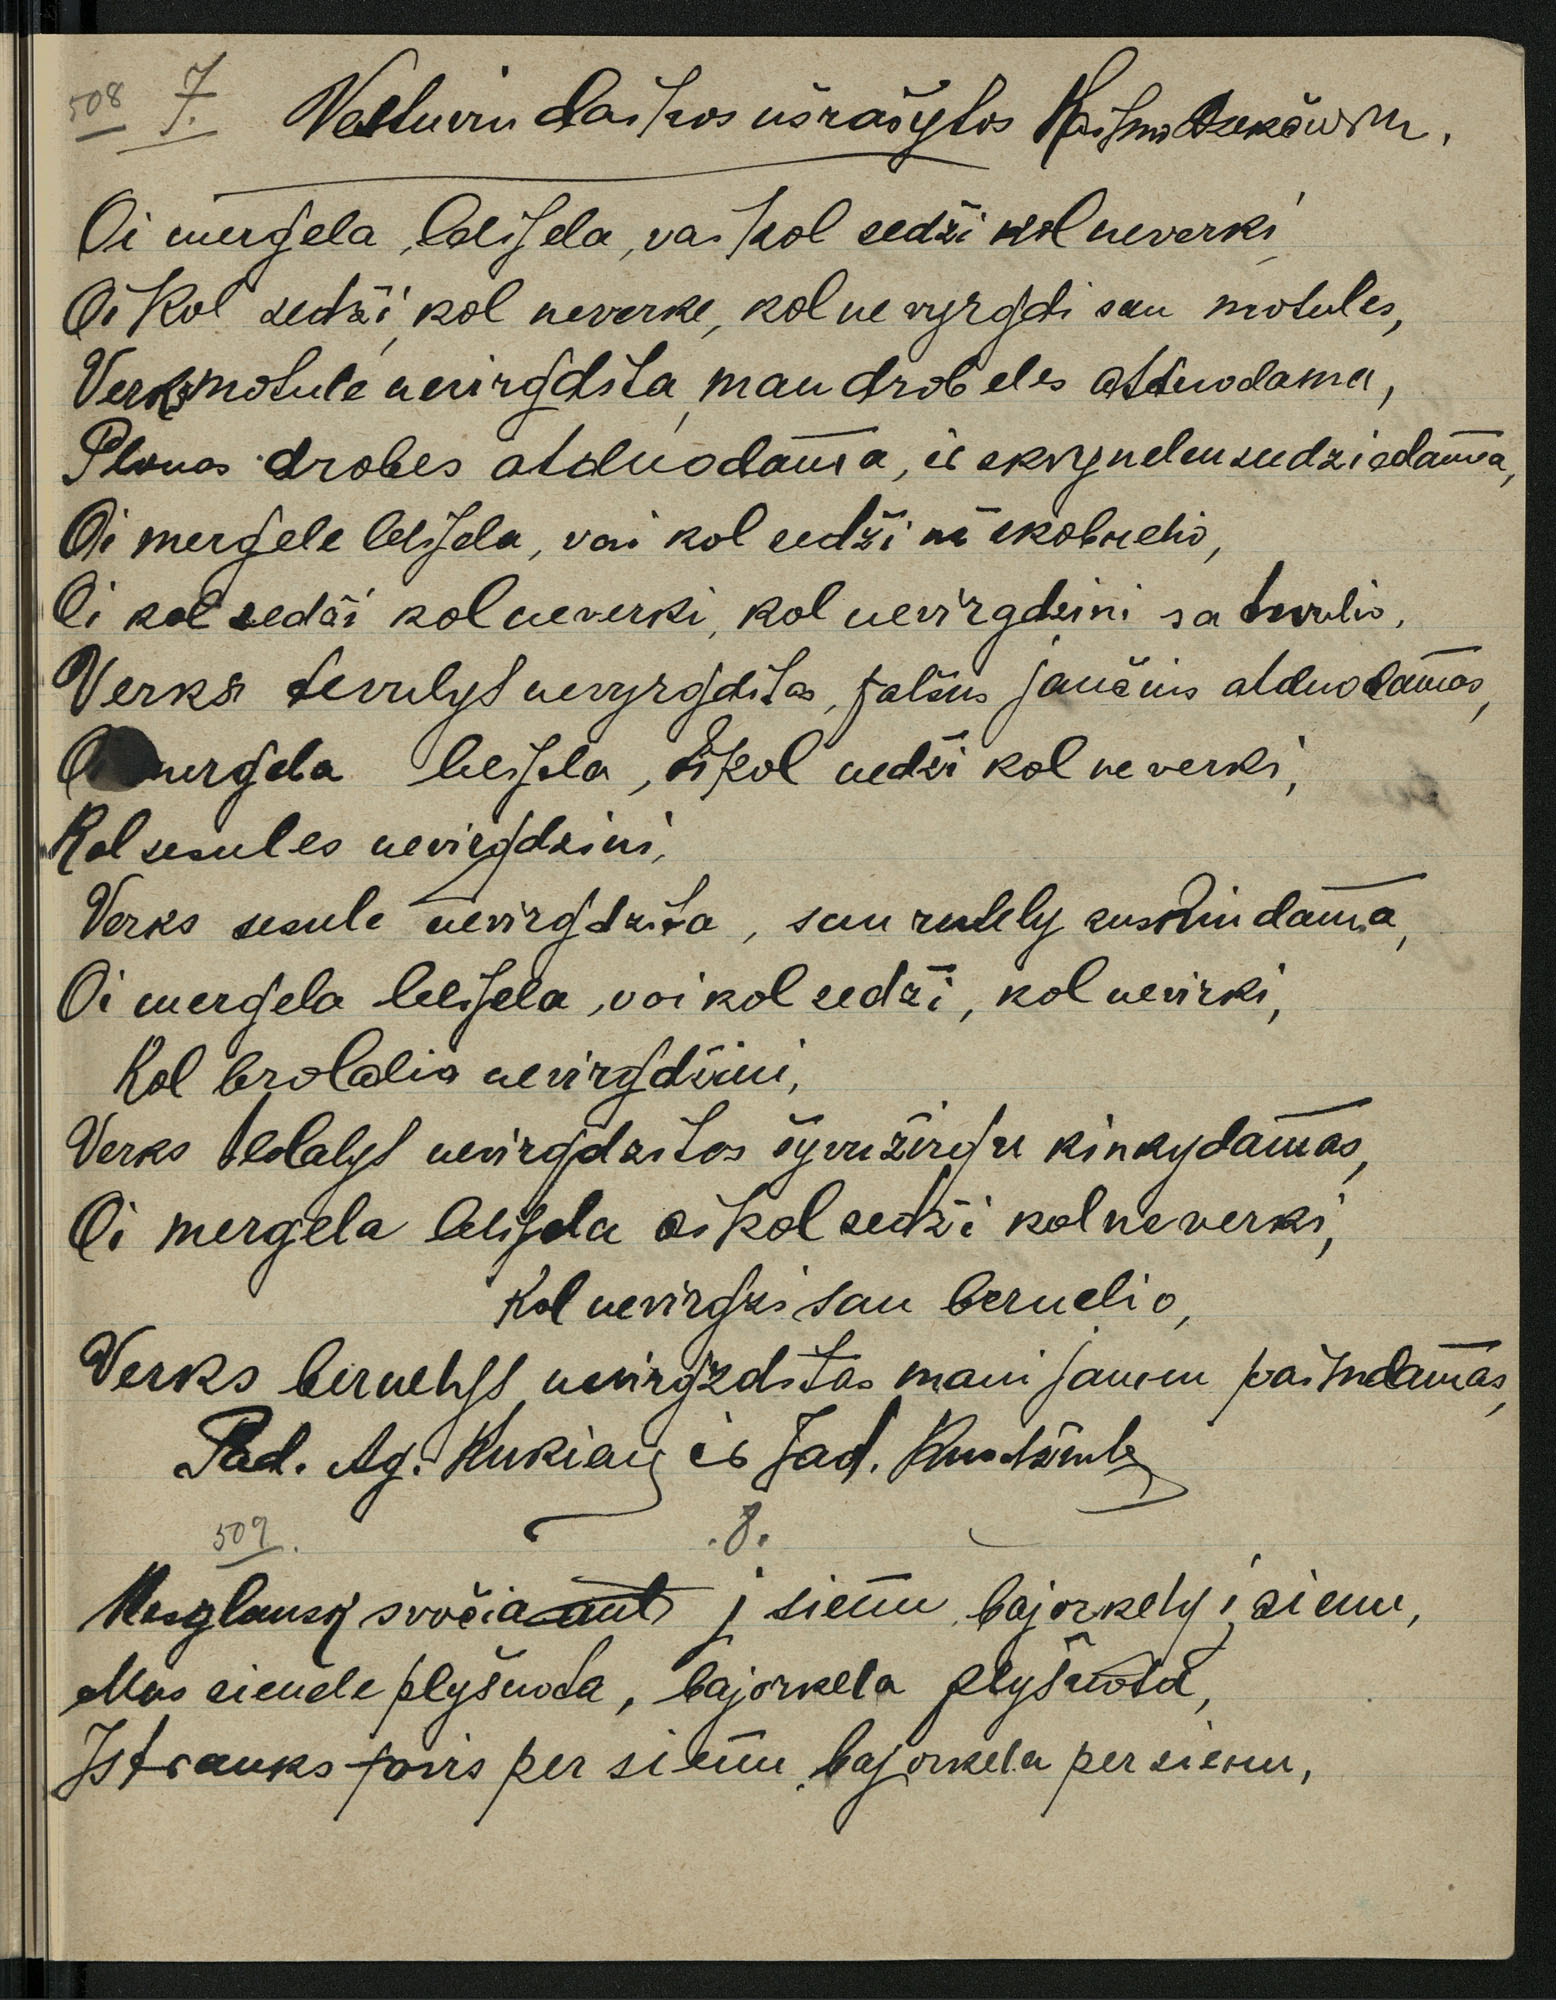 508 7. Vestuviu dainos usrašytos Kaismo
Oi mergela, lelijela, vai kol sedži kol neverki
Oi Kol sedži, kol neverke, kol ne vyrgdi sau motules,
Verks motule nevirgdita, man drobeles atduodama,
Plonas drobes atduodama, ir skrynelen sudziedama,
Oi mergele lelijela, vai kol sedži
Oi kol sedži kol neverki, kol nevirgdzini sa tevulio,
Verks tevulys nevyrgditas, jaučius atduodamas,
Oi mergela lelijela, oi kol sedži kol neverki,
Kol sesules nevirgdzini,
Verks sesule nevirgdzita, sau rutely
Oi mergela lelijela, voi kol sedži, kol nevirki,
Kol brolalio nevirgdžini,
Verks nevirgdzitos žirgu kinkydamas,
Oi mergela lelijela oi kol sedži kol neverki,
Kol nevirgzi sau bernelio,
Verks bernelys nevirgzditas mani jaunu paimdamas,
Pad. Ag. Kukiany ir Jad.
509. .8.
svočia į sienu, bajorkely į sienu,
Mus sienele plyšuota, bajorkela plyšuota,
Ištrauks per sienu, bajorkela per sienu,